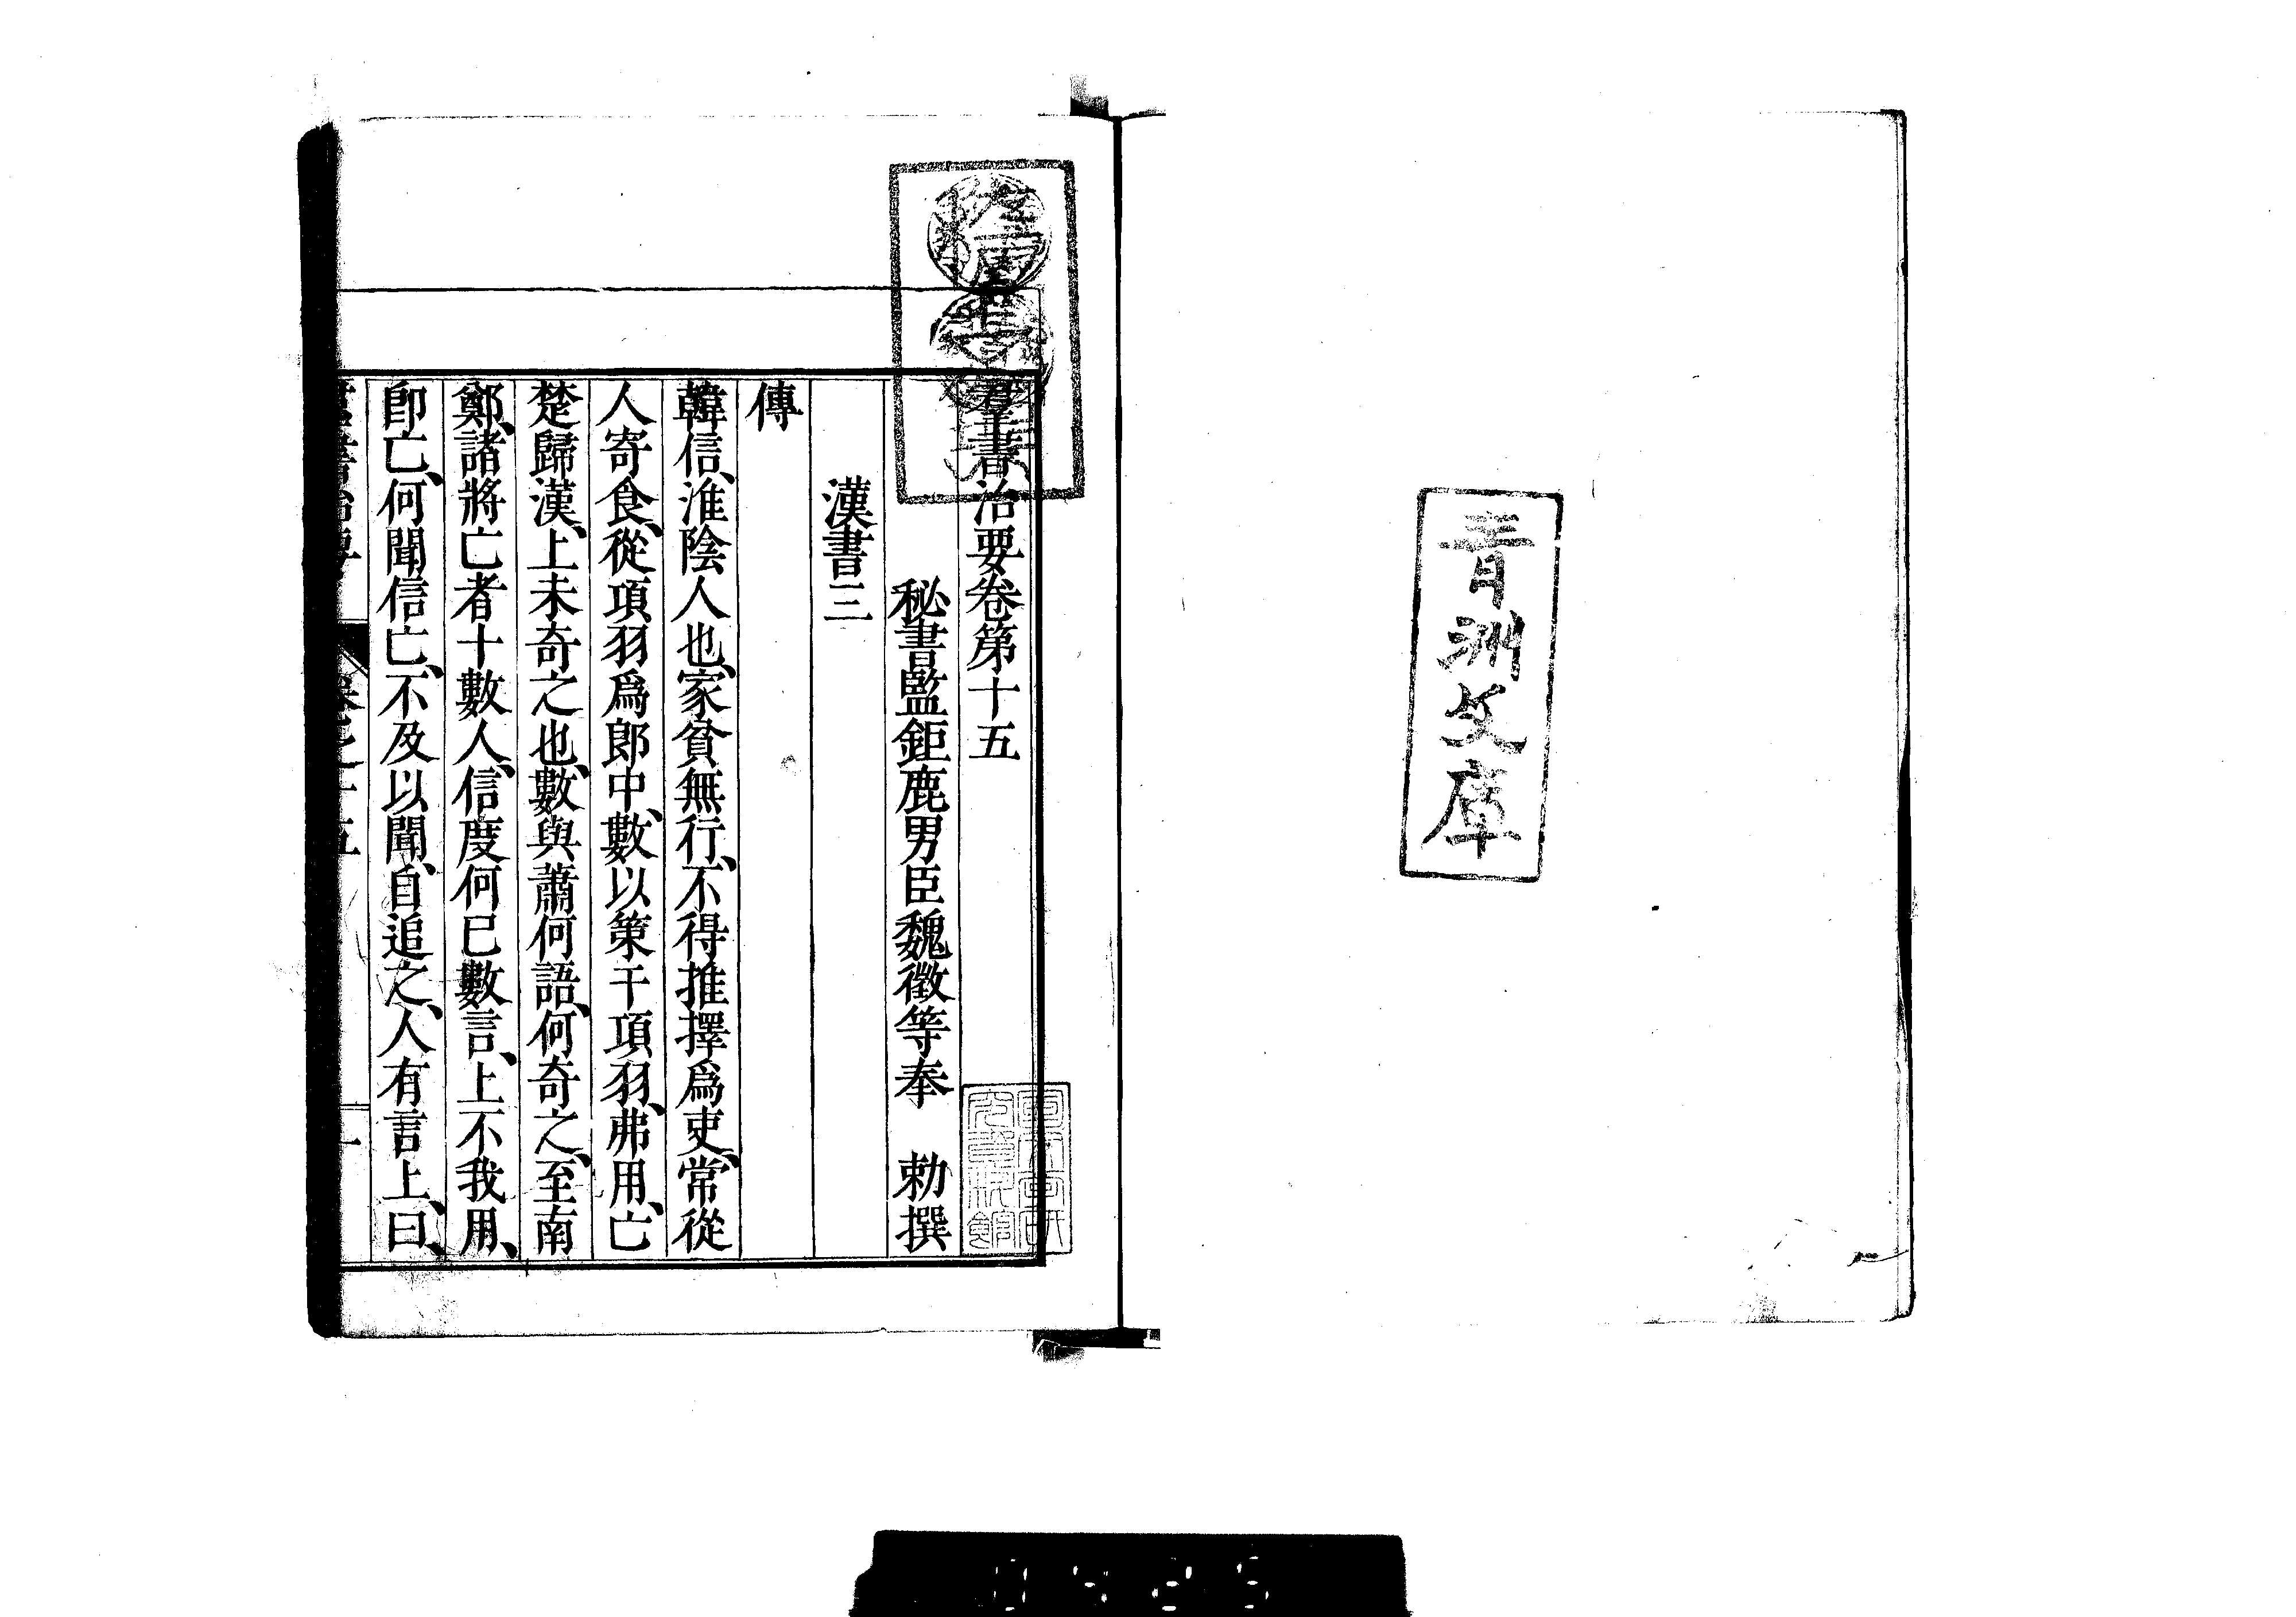 青洲文庫
羣書治要卷第十五
秘書監鉅鹿男臣魏徵等奉　勅撰
漢書三
傳
韓信、淮陰人也、家貧無行、不得推擇爲吏、常從
人寄食、從項羽爲郎中、數以策干項羽、弗用、亡
楚歸漢、上未奇之也、數與蕭何語、何奇之、至南
鄭、諸將亡者十數人、信度何已數言、上不我用、
卽亡、何聞信亡、不及以聞、自追之、人有言上、曰、